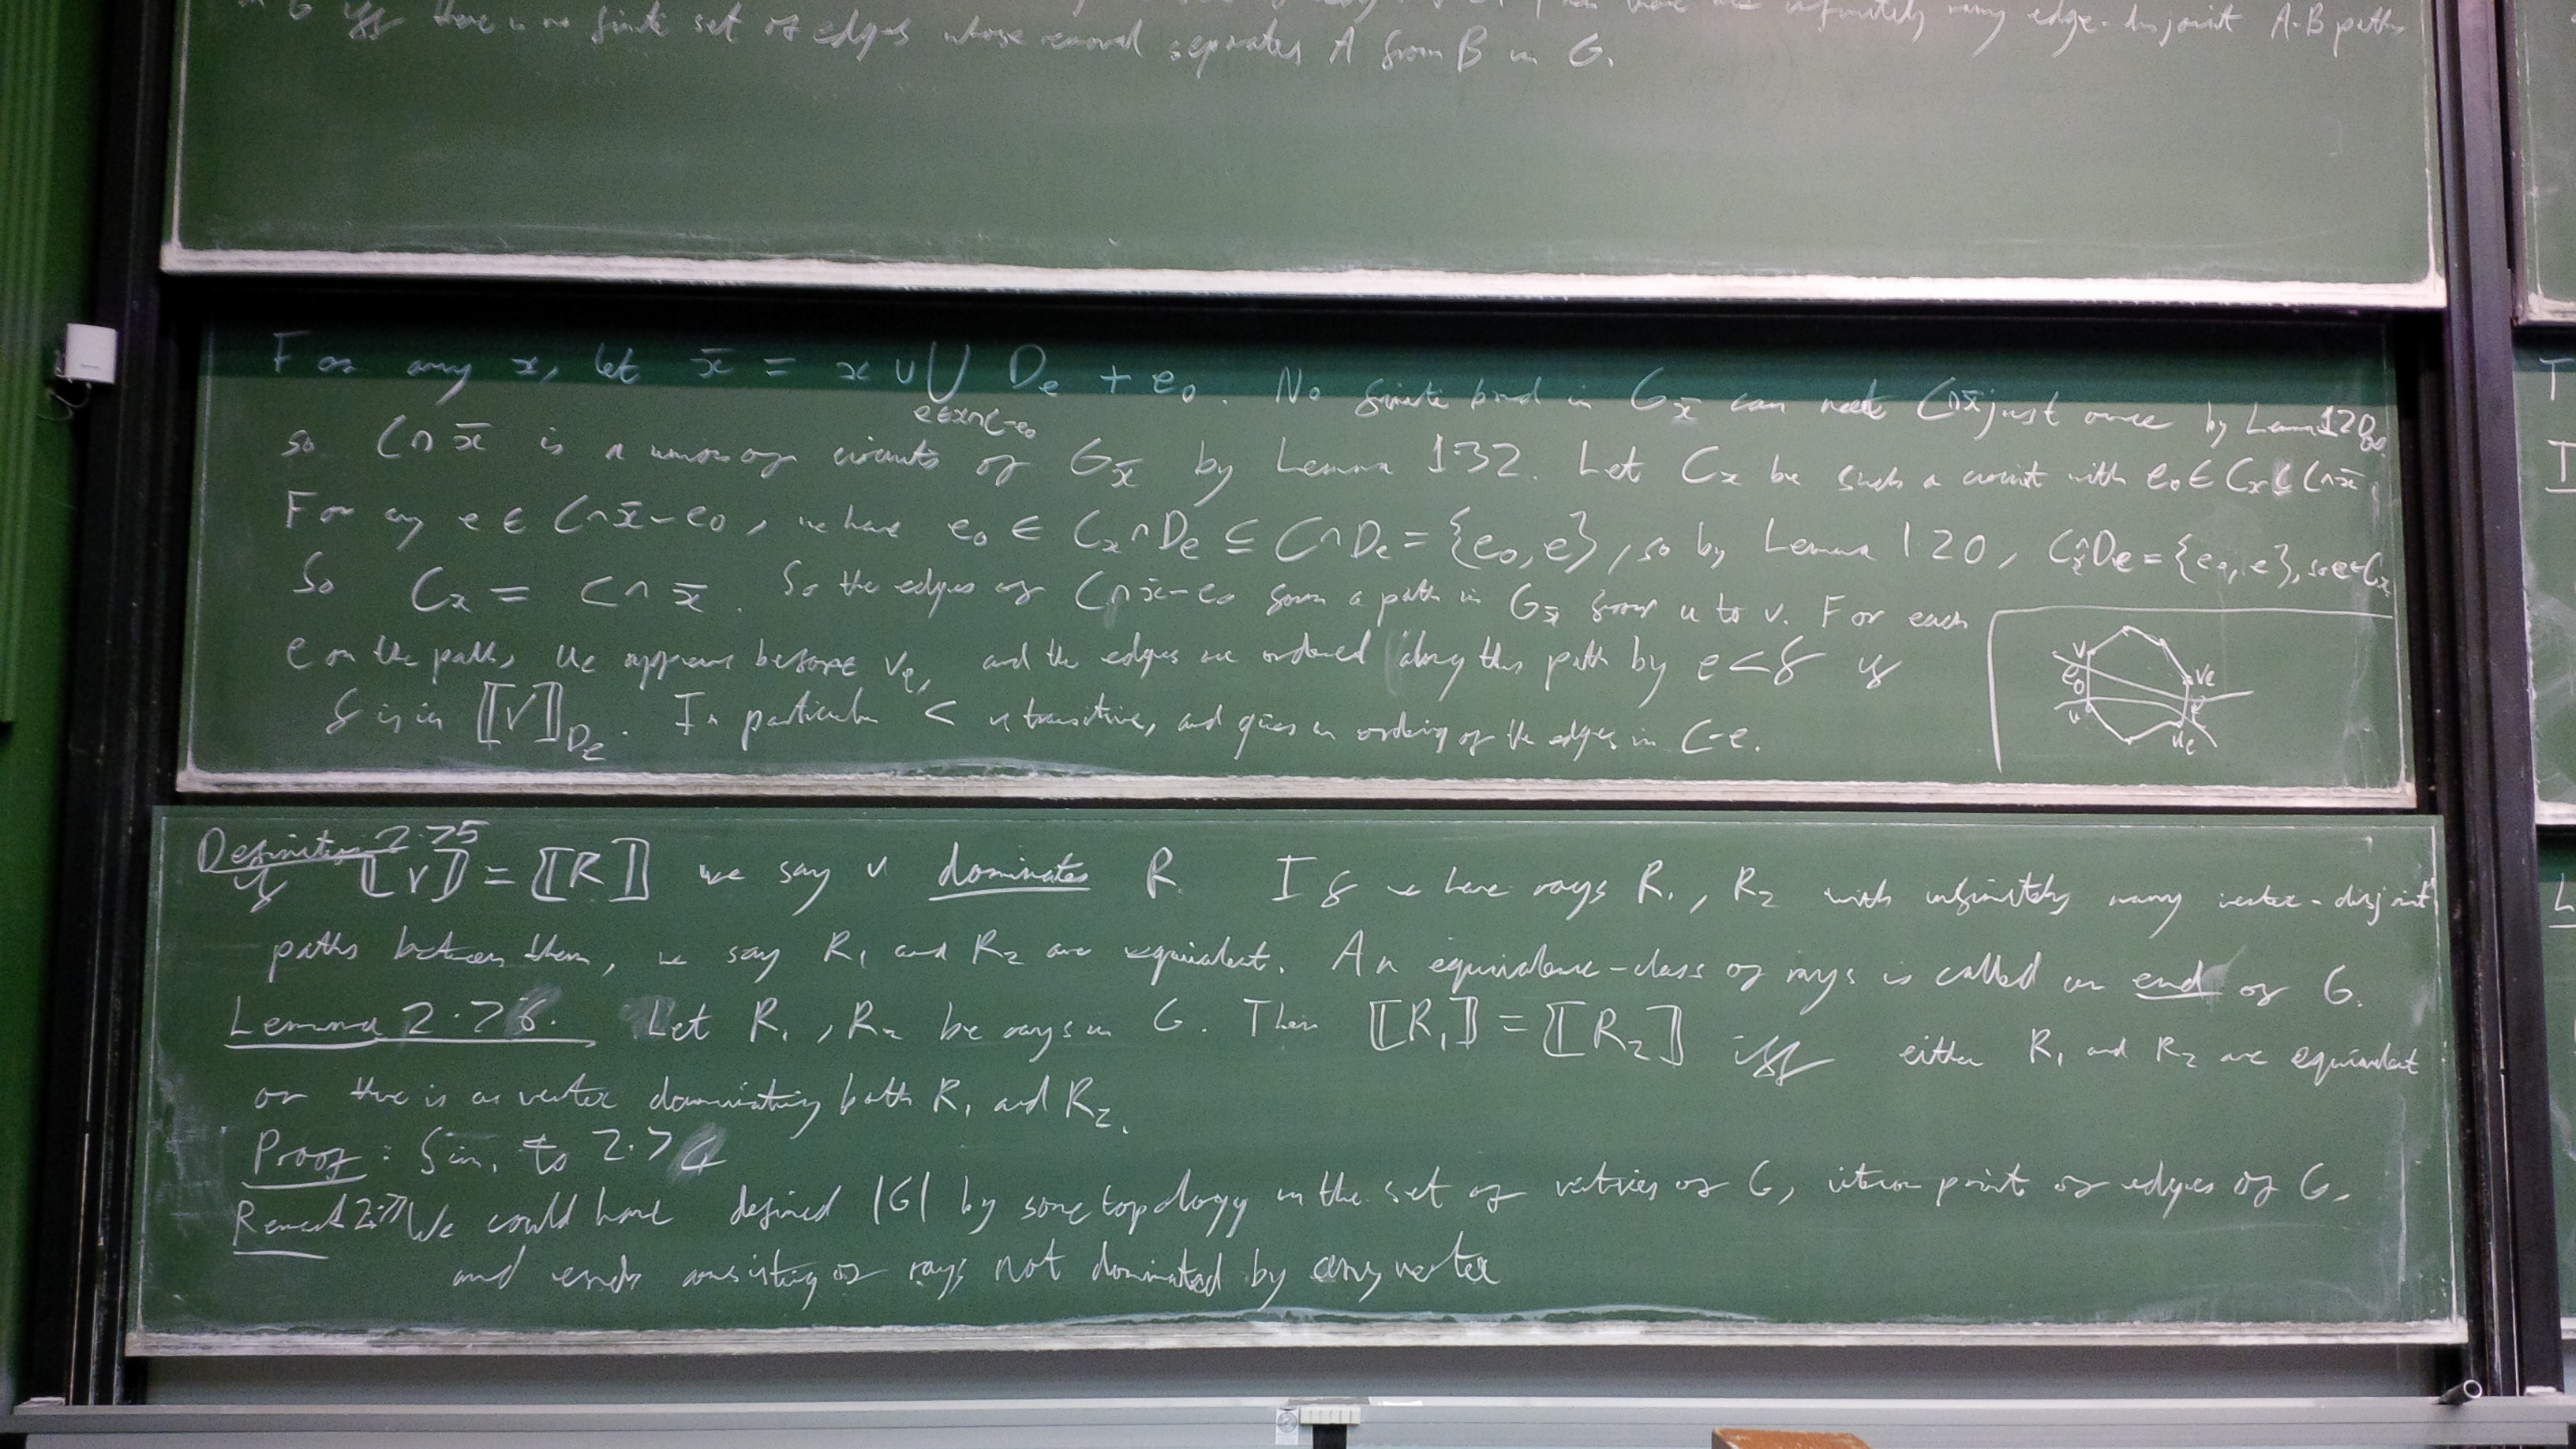 in G iff there is no finite set of edges whose removal separates A from B in G.
infinitely many edge-disjoint A-B paths
For any x, let x̄ = x ∪ ⋃ D_e + e₀. No finite bond in G_x̄ can meet C∩x̄ just once by Lemma 1.20
e∈x∩C-e₀
so C∩x̄ is a union of circuits of G_x̄ by Lemma 1.32. Let C_x be such a circuit with e₀ ∈ C_x ⊆ C∩x̄.
For any e ∈ C∩x̄-e₀, we have e₀ ∈ C_x∩D_e ⊆ C∩D_e = {e₀, e}, so by Lemma 1.20, C_x∩D_e = {e₀, e}, so e∈C_x
So C_x = C∩x̄. So the edges of C∩x̄-e₀ form a path in G_x̄ from u to v. For each
e on the path, u_e appears before v_e, and the edges are ordered along this path by e<f if
f is in ⟦V⟧_{D_e}. In particular < is transitive, and gives an ordering of the edges in C-e.
v
e₀
u
v_e
e
u_e
Definition 2.75
if ⟦v⟧ = ⟦R⟧ we say v dominates R. If we have rays R₁, R₂ with infinitely many vertex-disjoint
paths between them, we say R₁ and R₂ are equivalent. An equivalence-class of rays is called an end of G.
Lemma 2.76. Let R₁, R₂ be rays in G. Then ⟦R₁⟧ = ⟦R₂⟧ iff either R₁ and R₂ are equivalent
or there is a vertex dominating both R₁ and R₂.
Proof: Sim. to 2.74
Remark 2.77 We could have defined |G| by some topology on the set of vertices of G, interior points of edges of G,
and ends consisting of rays not dominated by any vertex